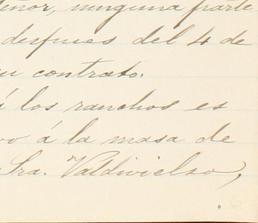 enor, ninguna parte
despues del 4 de
su contrato.
á los ranchos es
vo á la masa de
Sra. Valdivielso,